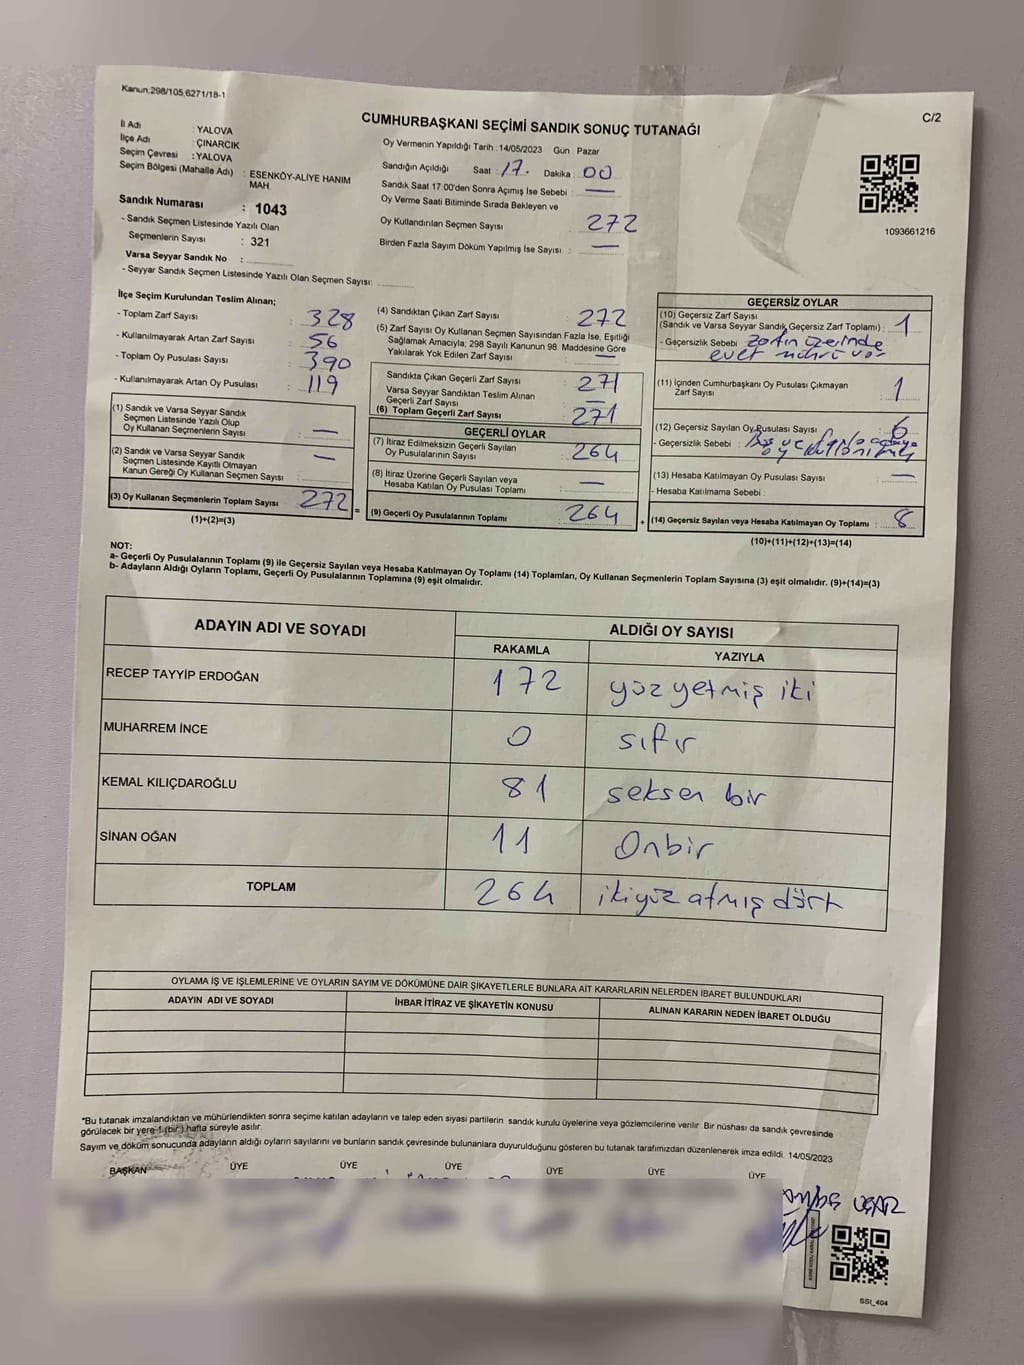 Kanun,298/105,6271/18-1
C/2
CUMHURBAŞKANI SEÇİMİ SANDIK SONUÇ TUTANAĞI
İl Adı : YALOVA
İlçe Adı : ÇINARCIK
Seçim Çevresi : YALOVA
Seçim Bölgesi (Mahalle Adı) : ESENKÖY-ALİYE HANIM
MAH.
Sandık Numarası : 1043
- Sandık Seçmen Listesinde Yazılı Olan
Seçmenlerin Sayısı : 321
Varsa Seyyar Sandık No :
- Seyyar Sandık Seçmen Listesinde Yazılı Olan Seçmen Sayısı:
Oy Vermenin Yapıldığı Tarih : 14/05/2023 Gün Pazar
Sandığın Açıldığı Saat : 17. Dakika : 00
Sandık Saat 17.00'den Sonra Açımış İse Sebebi : —
Oy Verme Saati Bitiminde Sırada Bekleyen ve
Oy Kullandırılan Seçmen Sayısı : 272
Birden Fazla Sayım Döküm Yapılmış İse Sayısı : —
1093661216
İlçe Seçim Kurulundan Teslim Alınan;
- Toplam Zarf Sayısı : 328
- Kullanılmayarak Artan Zarf Sayısı : 56
- Toplam Oy Pusulası Sayısı : 390
- Kullanılmayarak Artan Oy Pusulası : 119
(1) Sandık ve Varsa Seyyar Sandık
Seçmen Listesinde Yazılı Olup
Oy Kullanan Seçmenlerin Sayısı : —
(2) Sandık ve Varsa Seyyar Sandık
Seçmen Listesinde Kayıtlı Olmayan
Kanun Gereği Oy Kullanan Seçmen Sayısı : —
(3) Oy Kullanan Seçmenlerin Toplam Sayısı : 272 =
(1)+(2)=(3)
(4) Sandıktan Çıkan Zarf Sayısı : 272
(5) Zarf Sayısı Oy Kullanan Seçmen Sayısından Fazla İse, Eşitliği
Sağlamak Amacıyla; 298 Sayılı Kanunun 98. Maddesine Göre
Yakılarak Yok Edilen Zarf Sayısı : —
Sandıkta Çıkan Geçerli Zarf Sayısı : 271
Varsa Seyyar Sandıktan Teslim Alınan
Geçerli Zarf Sayısı : —
(6) Toplam Geçerli Zarf Sayısı : 271
GEÇERLİ OYLAR
(7) İtiraz Edilmeksizin Geçerli Sayılan
Oy Pusulalarının Sayısı : 264
(8) İtiraz Üzerine Geçerli Sayılan veya
Hesaba Katılan Oy Pusulası Toplamı : —
(9) Geçerli Oy Pusulalarının Toplamı : 264 +
GEÇERSİZ OYLAR
(10) Geçersiz Zarf Sayısı
(Sandık ve Varsa Seyyar Sandık Geçersiz Zarf Toplamı) : 1
- Geçersizlik Sebebi : zarfın üzerinde
evet mührü var
(11) İçinden Cumhurbaşkanı Oy Pusulası Çıkmayan
Zarf Sayısı : 1
(12) Geçersiz Sayılan Oy Pusulası Sayısı : 6
- Geçersizlik Sebebi :
(13) Hesaba Katılmayan Oy Pusulası Sayısı : —
- Hesaba Katılmama Sebebi :
(14) Geçersiz Sayılan veya Hesaba Katılmayan Oy Toplamı : 8
(10)+(11)+(12)+(13)=(14)
NOT:
a- Geçerli Oy Pusulalarının Toplamı (9) ile Geçersiz Sayılan veya Hesaba Katılmayan Oy Toplamı (14) Toplamları, Oy Kullanan Seçmenlerin Toplam Sayısına (3) eşit olmalıdır. (9)+(14)=(3)
b- Adayların Aldığı Oyların Toplamı, Geçerli Oy Pusulalarının Toplamına (9) eşit olmalıdır.
ADAYIN ADI VE SOYADI ALDIĞI OY SAYISI
RAKAMLA YAZIYLA
RECEP TAYYİP ERDOĞAN 172 yüz yetmiş iki
MUHARREM İNCE 0 sıfır
KEMAL KILIÇDAROĞLU 81 seksen bir
SİNAN OĞAN 11 Onbir
TOPLAM 264 ikiyüz atmış dört
OYLAMA İŞ VE İŞLEMLERİNE VE OYLARIN SAYIM VE DÖKÜMÜNE DAİR ŞİKAYETLERLE BUNLARA AİT KARARLARIN NELERDEN İBARET BULUNDUKLARI
ADAYIN ADI VE SOYADI İHBAR İTİRAZ VE ŞİKAYETİN KONUSU ALINAN KARARIN NEDEN İBARET OLDUĞU
*Bu tutanak imzalandıktan ve mühürlendikten sonra seçime katılan adayların ve talep eden siyasi partilerin sandık kurulu üyelerine veya gözlemcilerine verilir. Bir nüshası da sandık çevresinde
görülecek bir yere 1 (bir) hafta süreyle asılır.
Sayım ve döküm sonucunda adayların aldığı oyların sayılarını ve bunların sandık çevresinde bulunanlara duyurulduğunu gösteren bu tutanak tarafımızdan düzenlenerek imza edildi. 14/05/2023
BAŞKAN ÜYE ÜYE ÜYE ÜYE ÜYE ÜYE
SSI_404